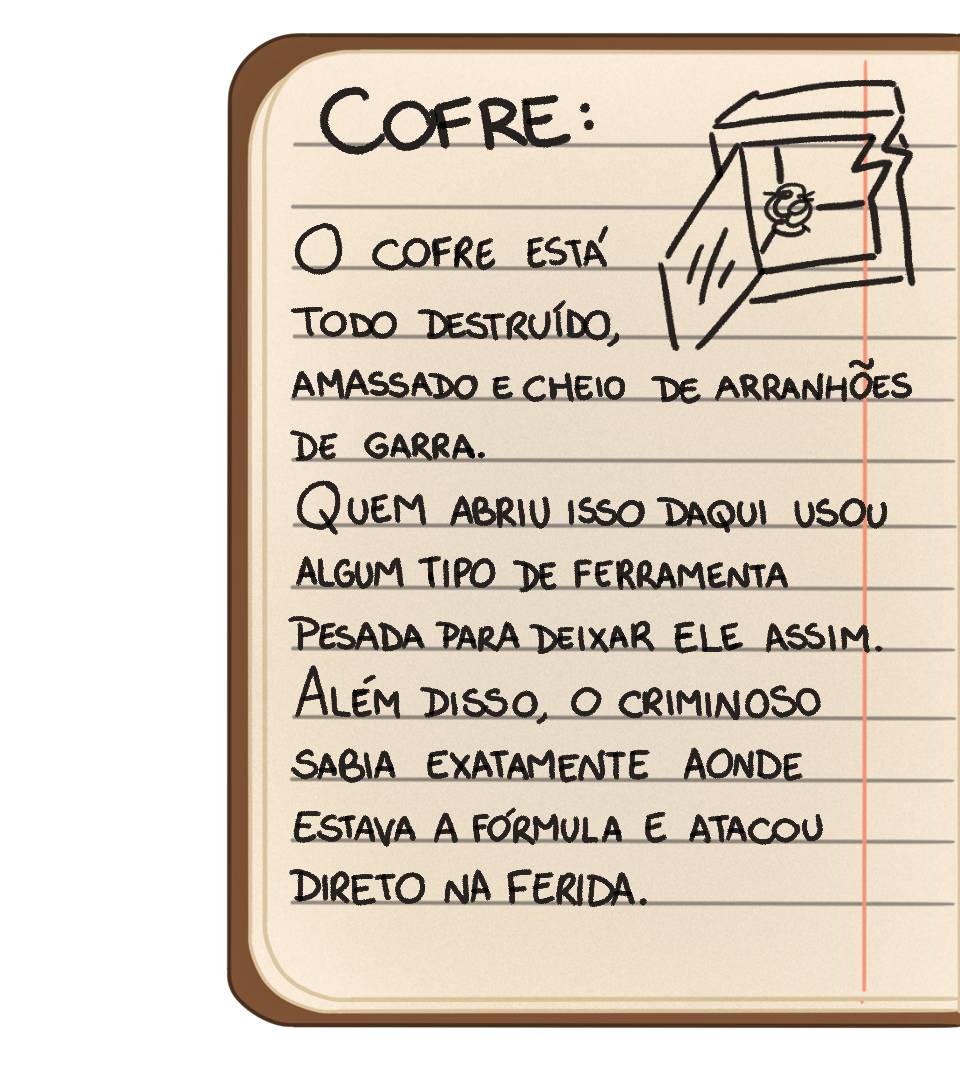 COFRE:
O COFRE ESTÁ
TODO DESTRUÍDO,
AMASSADO E CHEIO DE ARRANHÕES
DE GARRA.
QUEM ABRIU ISSO DAQUI USOU
ALGUM TIPO DE FERRAMENTA
PESADA PARA DEIXAR ELE ASSIM.
ALÉM DISSO, O CRIMINOSO
SABIA EXATAMENTE AONDE
ESTAVA A FÓRMULA E ATACOU
DIRETO NA FERIDA.